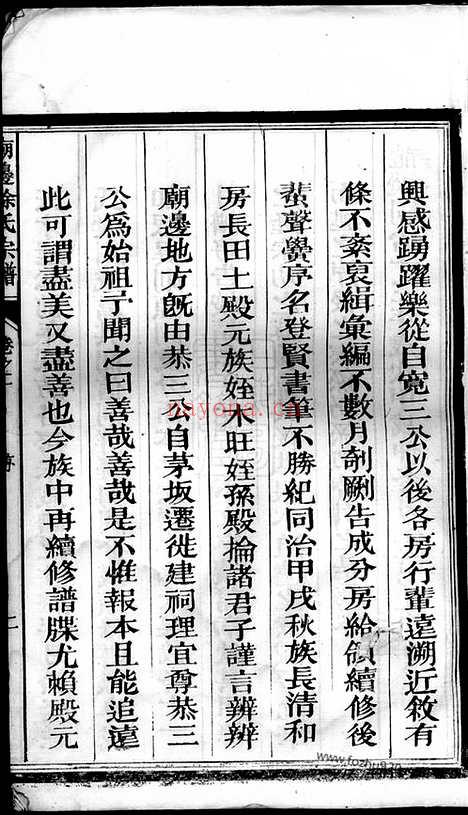 興感踴躍樂從自寬三公以後各房行輩遠溯近敘有
條不紊裒緝彙編不數月剞劂告成分房給領續修後
蜚聲黌序名登賢書筆不勝紀同治甲戌秋族長清和
房長田土殿元族姪木旺姪孫殿掄諸君子謹言辨辨
廟邊地方旣由恭三公自茅坂遷徙建祠理宜尊恭三
公爲始祖予聞之曰善哉善哉是不惟報本且能追遠
此可謂盡美又盡善也今族中再續修譜牒尤賴殿元
廟邊徐氏宗譜 卷之一 序 二
nayona.cn
www.fozhu920.com